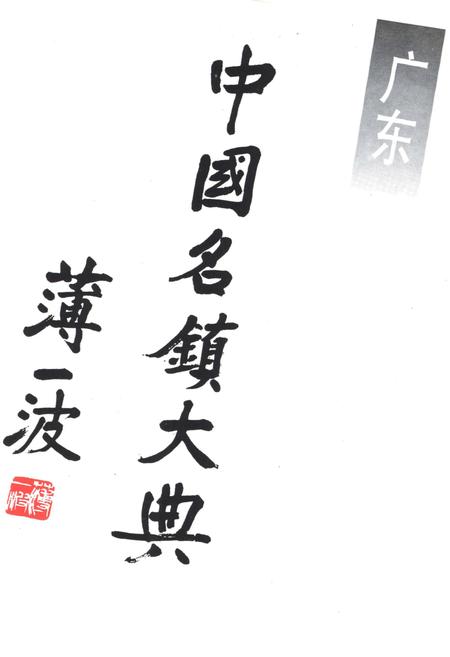 广东
中國名鎮大典
薄一波
薄一波